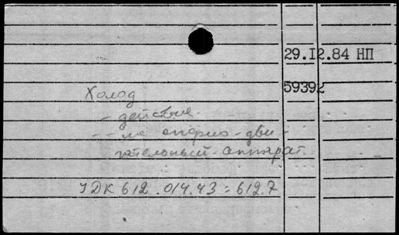 29.12.84 НП
59392
Холод
- действие
-- на опорно-дви-
гательный аппарат.
УДК 612.014.43:612.7